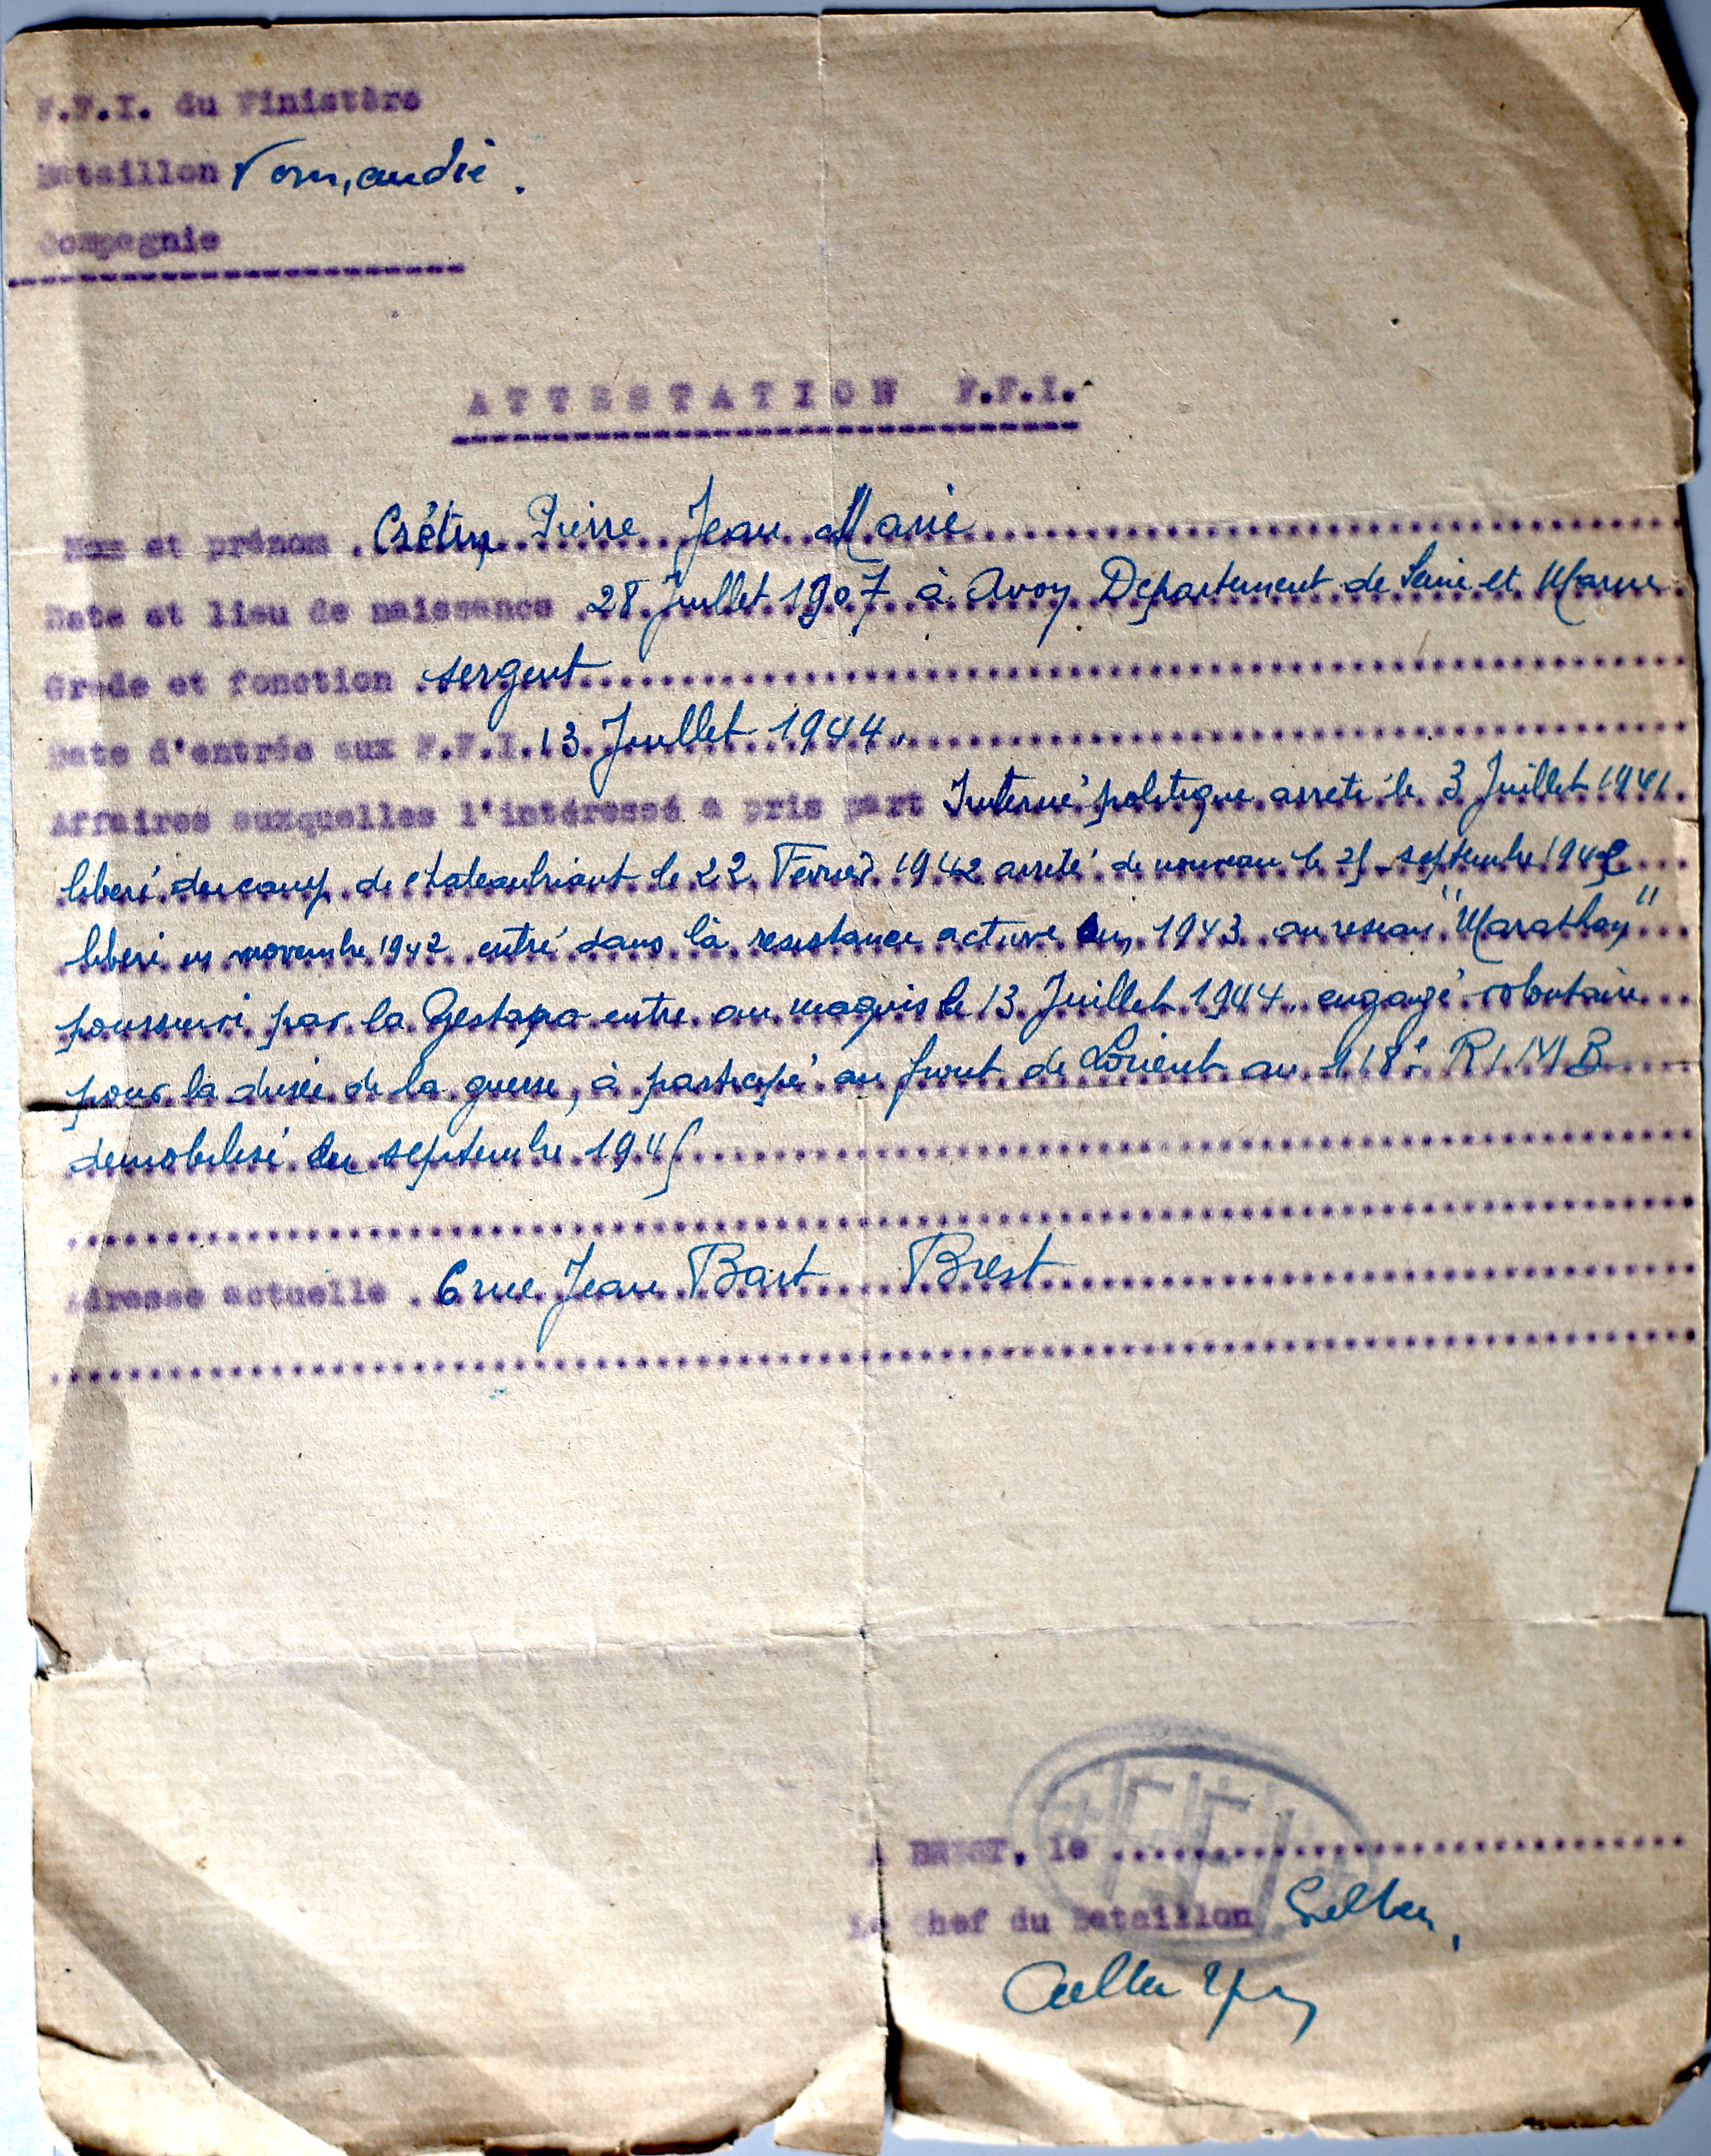 F.F.I. du Finistère
Bataillon Normandie.
Compagnie
ATTESTATION F.F.I.
Nom et prénom Crétin Pierre Jean Marie
Date et lieu de naissance 28 Juillet 1907 à Avon Departement de Seine et Marne
Grade et fonction sergent
Date d'entrée aux F.F.I. 13 Juillet 1944.
Affaires auxquelles l'intéressé a pris part Interné politique arreté le 3 Juillet 1941
liberé du camp de chateaubriant le 22 Février 1942 arrété de nouveau le septembre 1942
liberé en novembre 1942 entré dans la resistance active en 1943 au reseau "Marathon"
poursuivi par la Gestapo entre au maquis le 13 Juillet 1944. engagé volontaire
pour la durée de la guerre, à participé au front de Lorient au 118e R.I.M.B
demobilisé en septembre 1945
Adresse actuelle 6 rue Jean Bart Brest
A BREST, le
Le Chef du Bataillon
FFI